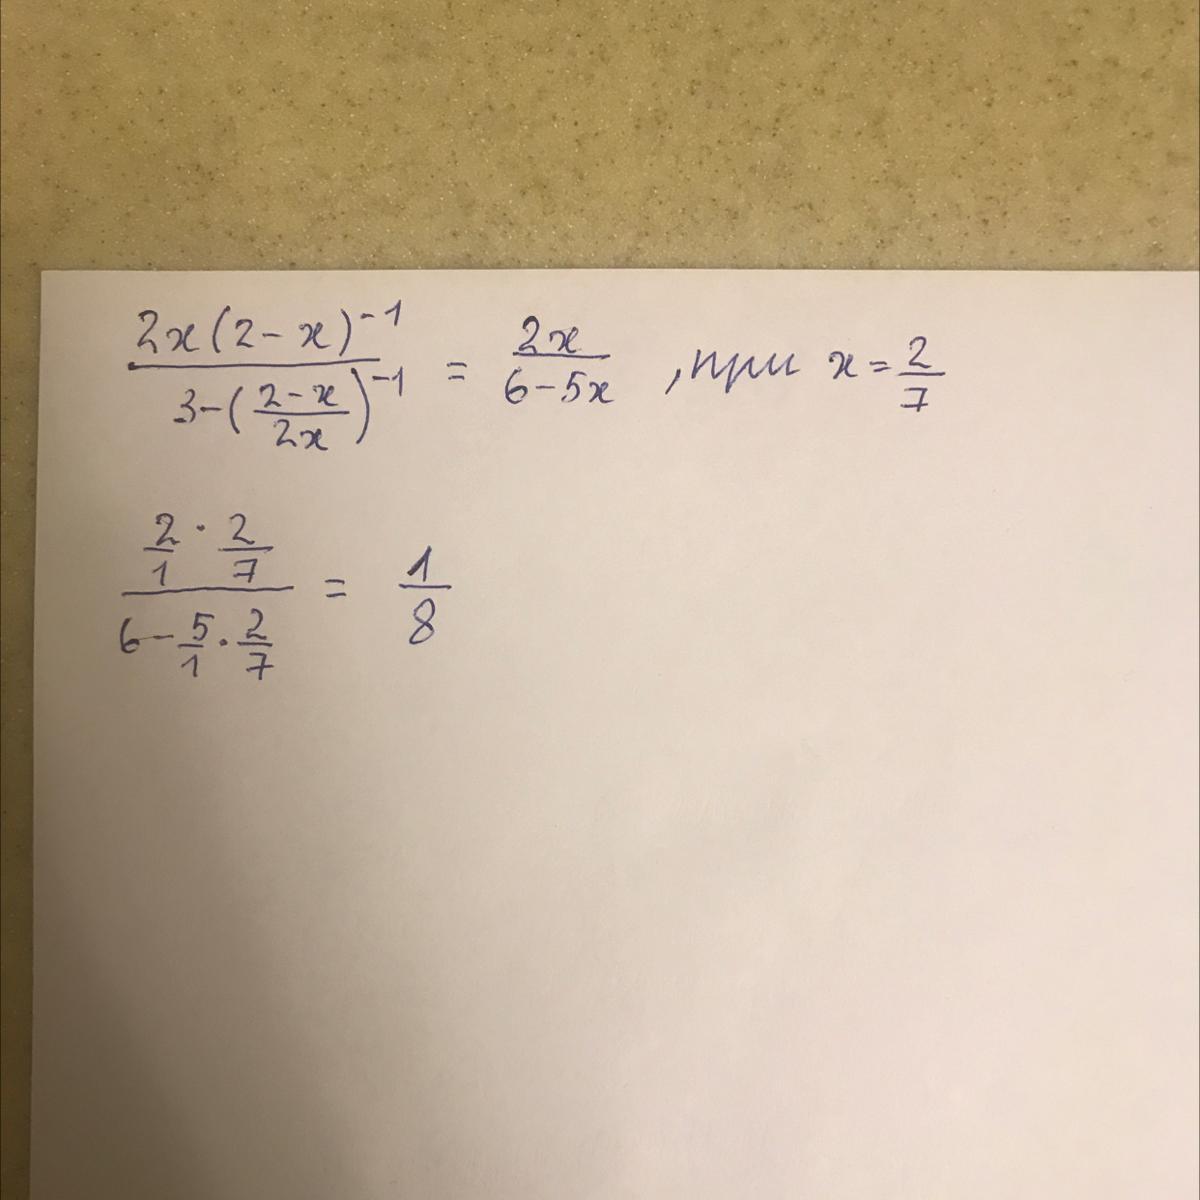 2x(2-x)^-1 / (3-((2-x)/(2x))^-1) = 2x/(6-5x) , при x = 2/7
(2/1 · 2/7) / (6 - 5/1 · 2/7) = 1/8